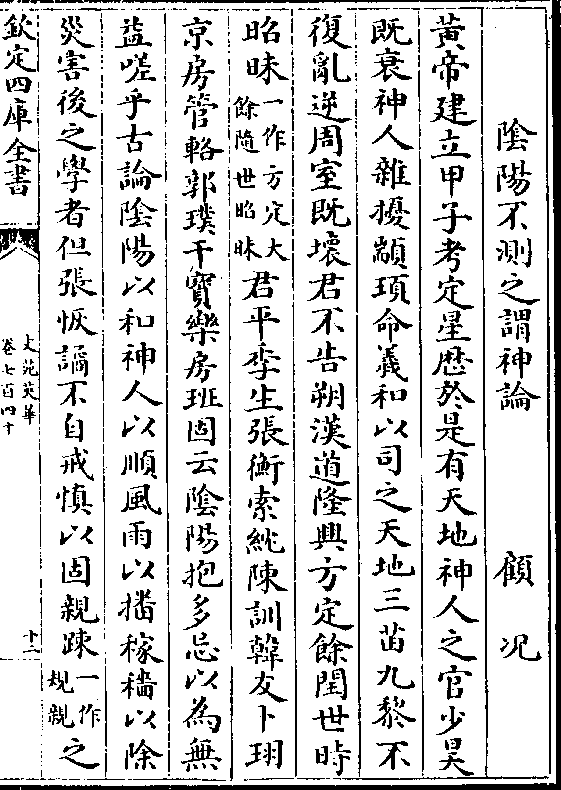 陰陽不測之謂神論　顧況
黃帝建立甲子考定星歴於是有天地神人之官少昊
既衰神人雜擾顓頊命羲和以司之天地三苗九黎不
復亂逆周室既壊君不告朔漢道隆興方定餘閏世時
昭昧一作方定大餘隨世昭昧君平李生張衡索紞陳訓韓友卜珝
京房管輅郭璞干寶欒房班固云陰陽抱多忌以為無
益嗟乎古論陰陽以和神人以順風雨以播稼穡以除
災害後之學者但張恢譎不自戒慎以固親踈一作規親之
欽定四庫全書
文苑英華
卷七百四十
十二